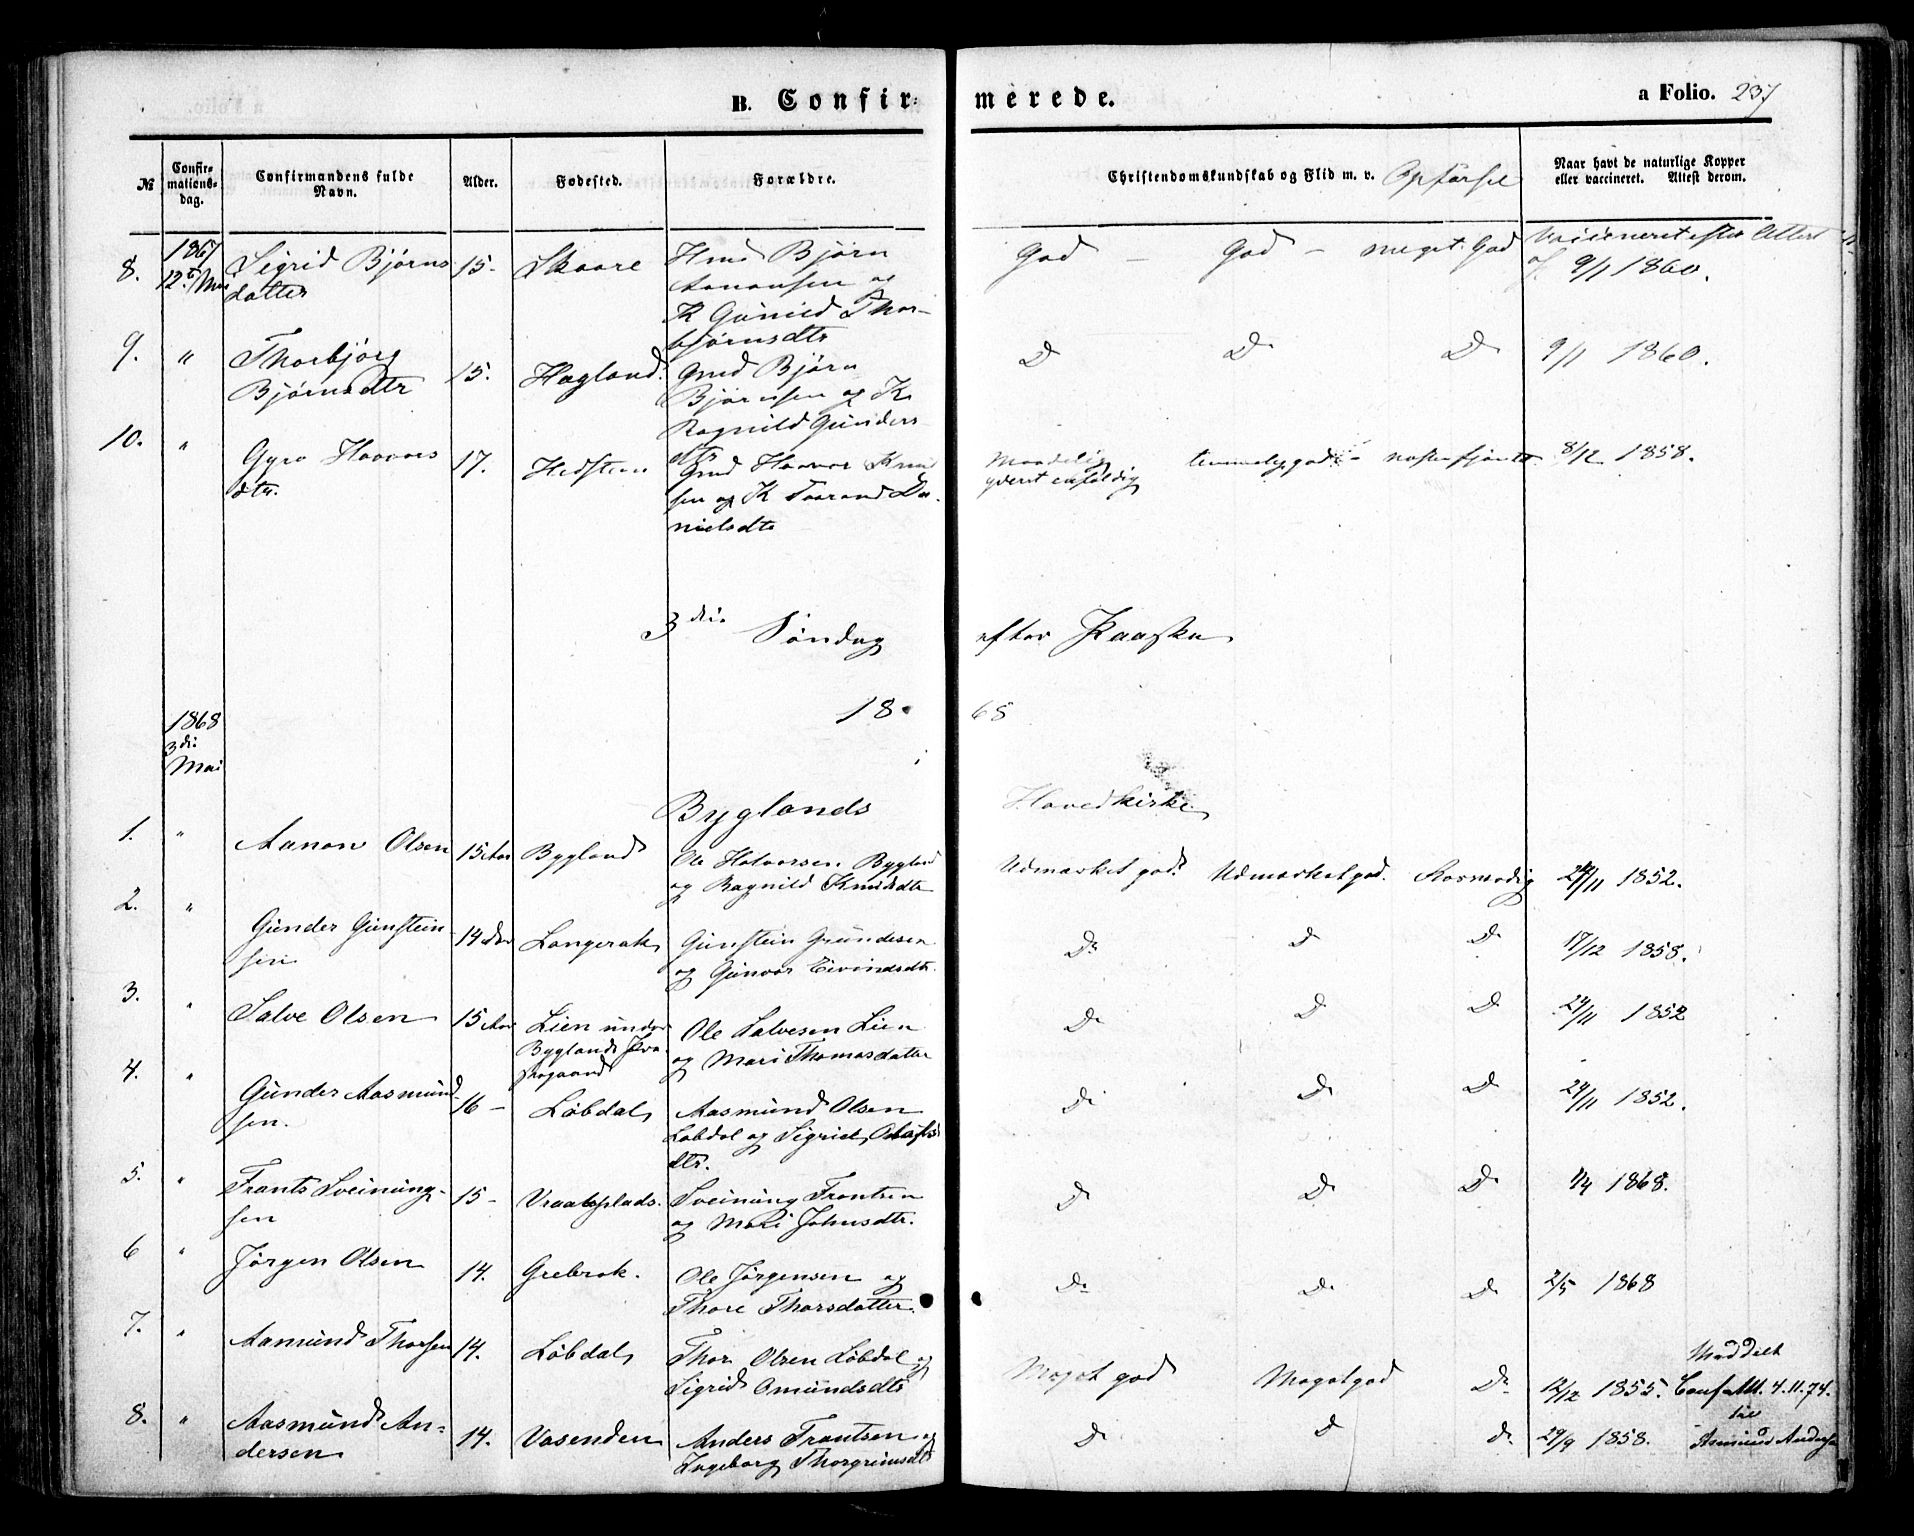 B. Confir=
merede.
a Folio. 237
№
Confir-
mations-
dag.
Confirmandens fulde
Navn.
Alder.
Fødested.
Forældre.
Christendomskundskab og Flid m. v. Opførsel
Naar havt de naturlige Kopper
eller vaccineret. Attest derom.
8. 1867 12te Mai Sigrid Bjørns
datter 15- Skaare
Bjørn
Aanonsen og
K Gunild Thor-
bjørnsdtr
God - God - meget God Vaccineret efter Attest
af 9/1 1860.
9. " Thorbjørg
Bjørnsdtr 15. Hagland.
Gmd Bjørn
Bjørnsen og K
Ragnild Gunders
dtr
D D D 9/1 1860.
10. " Gyro Haavors
dtr. 17. Hedsteen
Gmd Haavor Knud
sen og K Taarand Da-
nielsdtr
Maadelig
yderst enfoldig
temmelig god 8/12 1858.
3die Søndag efter Paaske
1868
1868
3die
Mai
i
Byglands Hovedkirke
1. " Aanon Olsen 15 Aar Bygland
Ole Halvorsen Bygland
og Ragnild Knudsdtr
Udmærket god. Udmærket god. 24/11 1852.
2. " Gunder Gunstein
sen 14 Aar Langerak
Gunstein Gundersen
og Gunvor Eivindsdtr.
Do D D 17/12 1858.
3. " Salve Olsen 15 Aar Lien under
Byglands
Ole Salvesen Lien
og Mari Thomasdatter
D D D 24/11 1852
4. " Gunder Aasmund
sen. 16- Løbdal
Aasmund Olsen
Løbdal og Sigrid Olafs
dtr.
D D D 24/11 1852.
5. " Frants Sveinung-
sen 15- Vraalsplads.
Sveinung Frantsen
og Mari Johnsdtr.
D D D 1/4 1868.
6 " Jørgen Olsen 14. Grebrok.
Ole Jørgensen og
Thore Thorsdatter.
Do D D 2/5 1868
7. " Aamund Thorsen 14. Løbdal
Thor Olsen Løbdal og
Sigrid Omundsdtr
Meget god Meget god D 12/12 1855.
8. " Aasmund An-
dersen 14. Vasenden
Anders Frantsen og
Ingeborg Thorgrimsdtr
D D D 29/9 1858.
Meddelt
Conf. Att. 4.11.74.
til
Asmund Anders